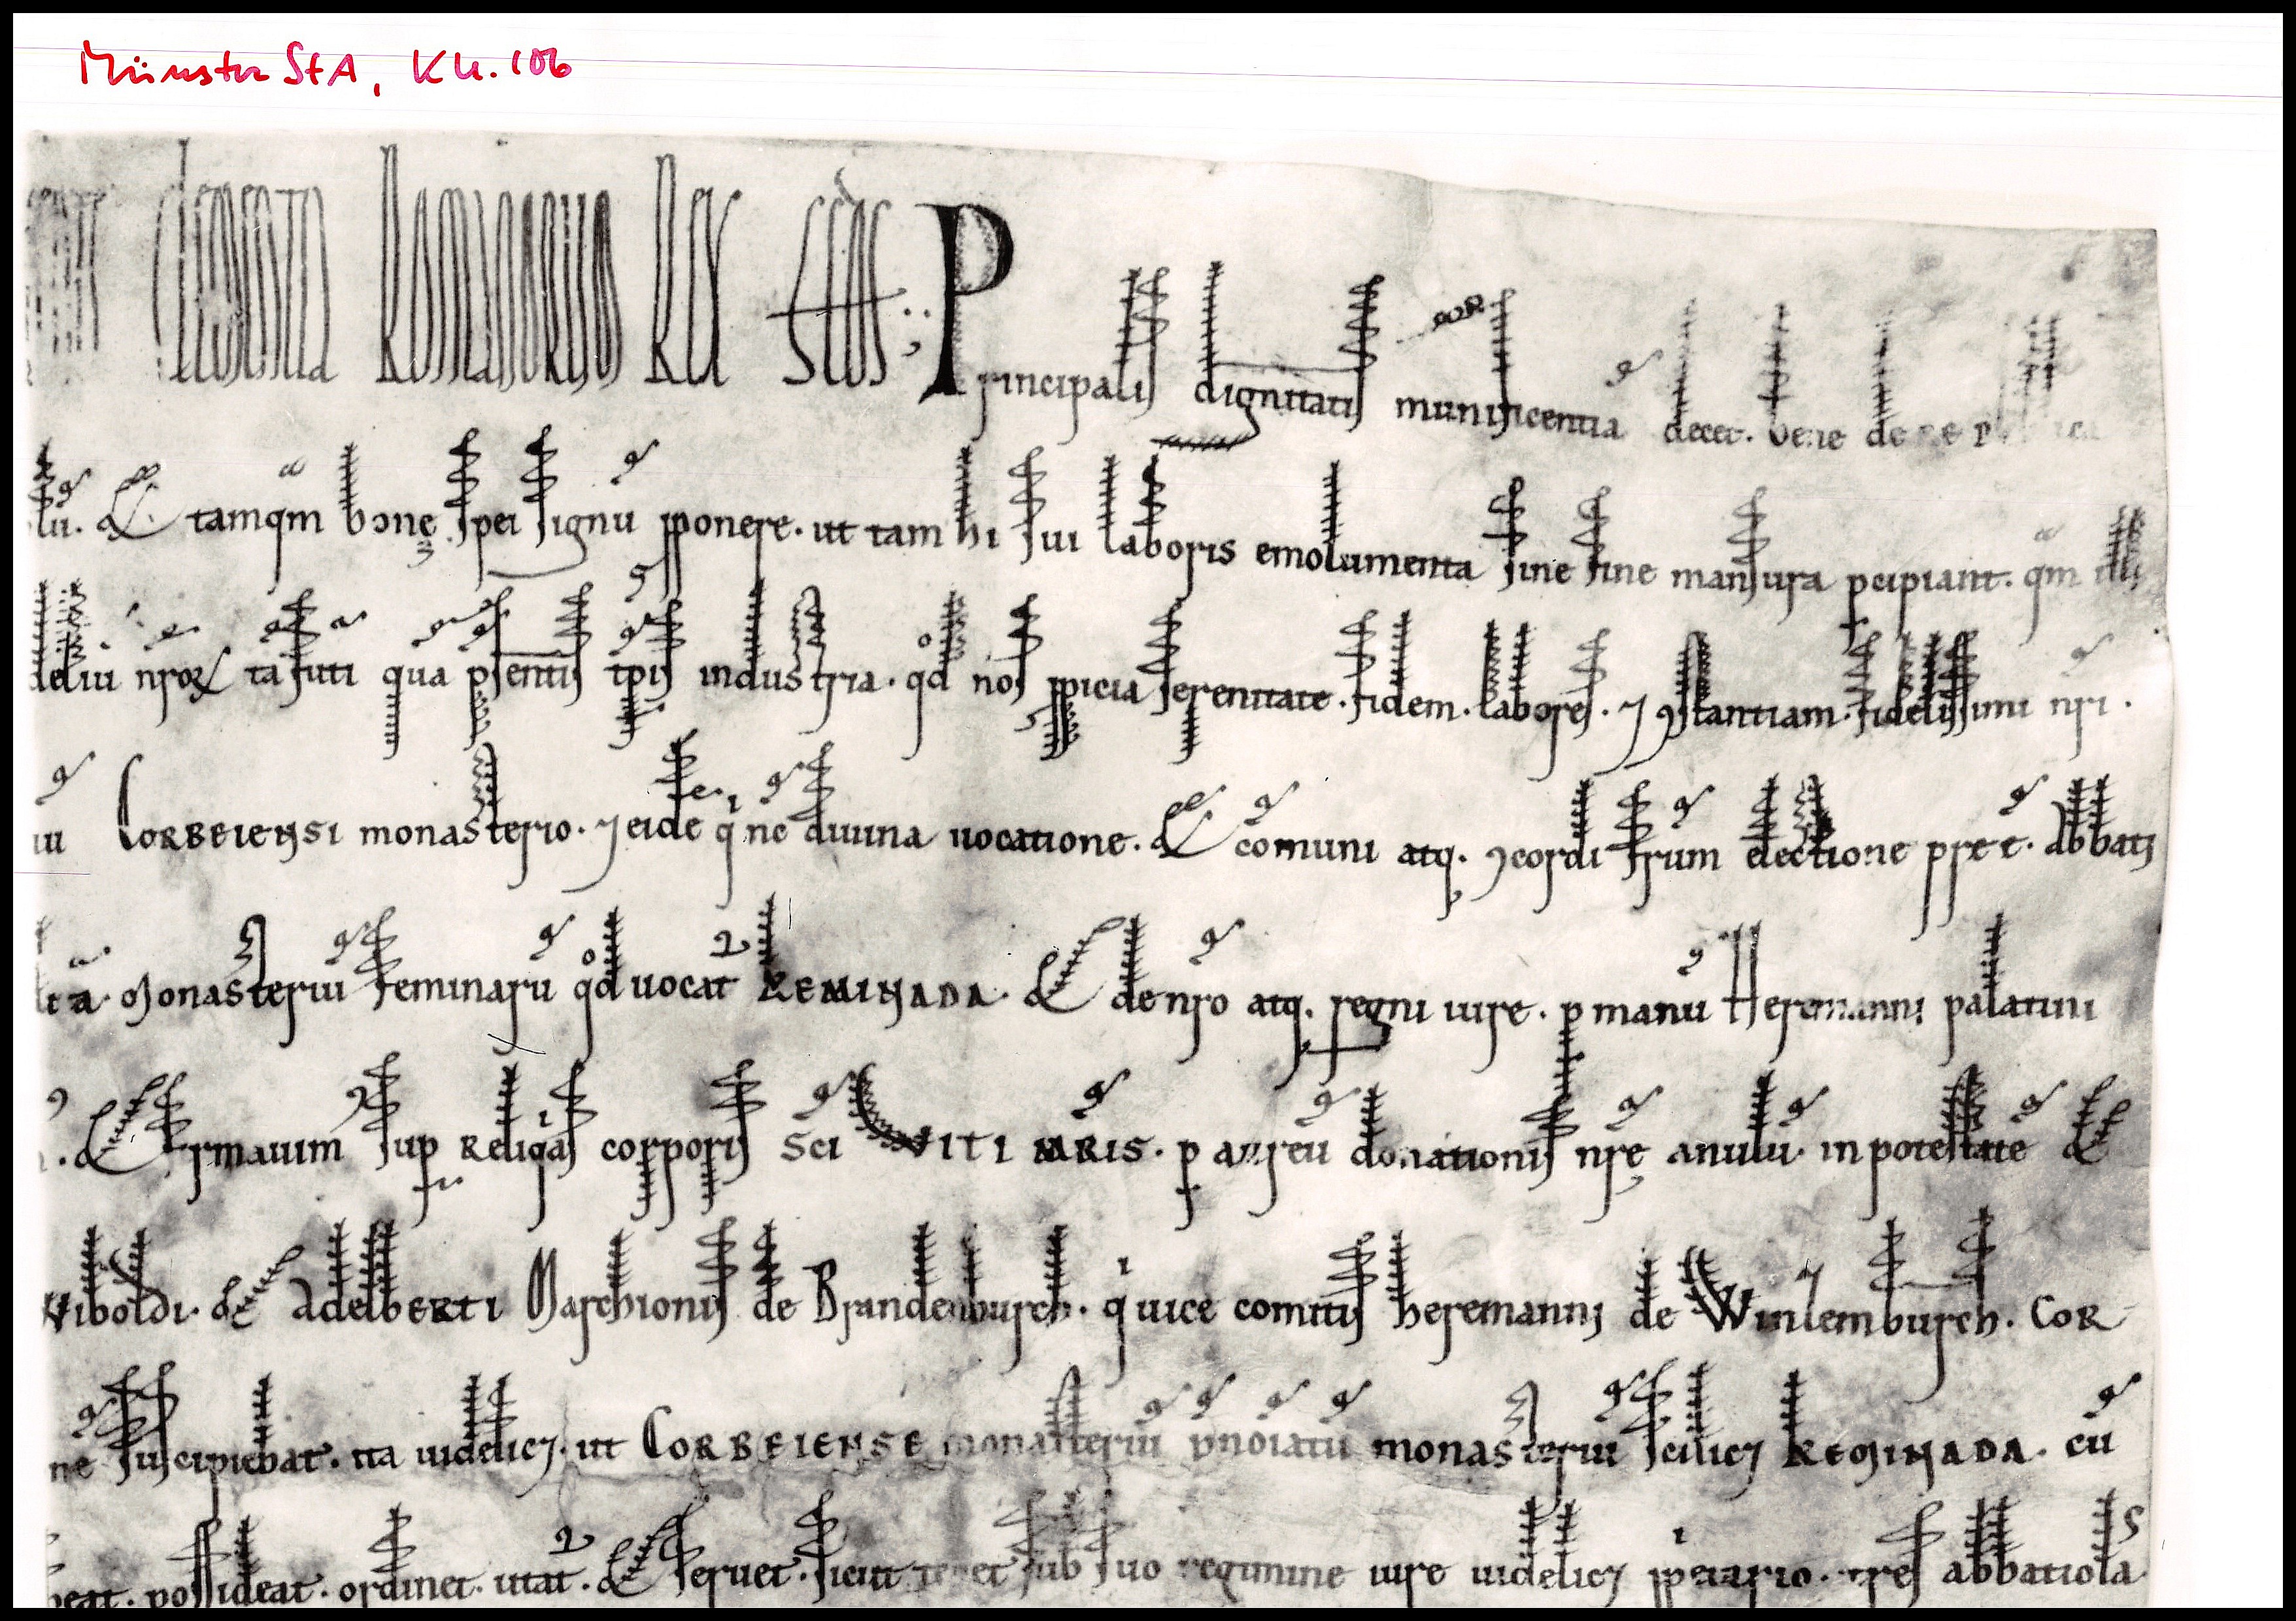 Münster StA, KU. 106
clementia Romanorum Rex scd̄s. Principalis dignitatis munificentia decet. bene de re p
lū. Et tamqm bonę spei signū p̱ponere. ut tam hi sui laboris emolumenta sine fine mansura pcipiant. qm illi
deliū nrōꝝ tā futi quā p̄sentis tp̄is industria. qd nos p̱picia serenitate. fidem. labores. ⁊ ꝯstantiam. fidelissimi nr̄i.
iu Corbeiensi monasterio. ⁊ eidē qi ne diuina uocatione. Et cōmuni atq. ꝯcordi fr̄um electione preē. Abbatis
ta monasteriū feminarū qd uocat᷑ Keminada. Et de nr̄o atq. regni iure. p manū Heremanni palatini
. Et firmauim᷒ sup reliqas corporis Sc̄i Viti m̄ris. p aureū donationis nr̄ę anulū. in potestatē et
Wiboldi. et Adelberti Marchionis de Brandenburch. qi uice comitis heremanni de Winzemburch. Cor
nē suscipiebat. ita uidelicꝫ. ut Corbeiense monasteriū p̄noiatū monasteriū scilicꝫ Keminada. cū
beat. possideat. ordinet. utat᷑. Et seruet. sicut tenet sub suo regimine iure uidelicꝫ p̱pietario. tres abbatiolas